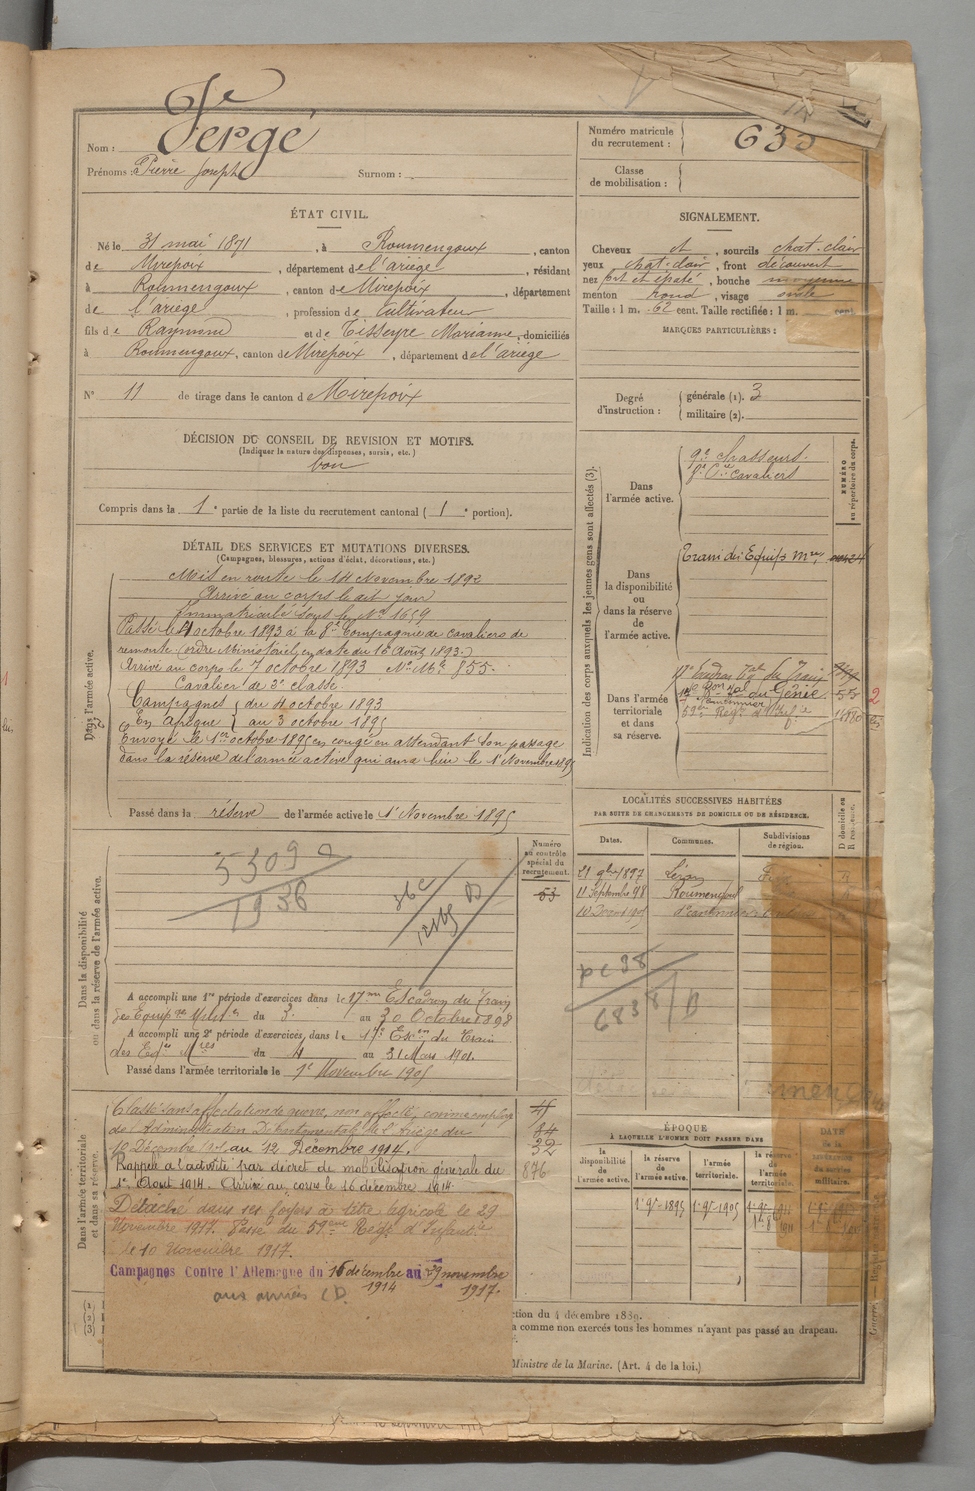 Nom : Vergé
Prénoms : Pierre Joseph Surnom :
Numéro matricule
du recrutement :
Classe
de mobilisation :
ÉTAT CIVIL.
Né le 31 mai 1871, à Roumengoux, canton
de Mirepoix, département de l'ariège, résidant
à Roumengoux, canton de Mirepoix, département
de l'ariège, profession de Cultivateur
fils de Raymond et de Tisseyre Marianne, domiciliés
à Roumengoux, canton de Mirepoix, département de l'ariège
N° 11 de tirage dans le canton de Mirepoix
SIGNALEMENT.
Cheveux et, sourcils chat-clair
yeux chat-clair, front découvert
nez fort et épaté, bouche moyenne
menton rond, visage ovale
Taille : 1 m. 62 cent. Taille rectifiée : 1 m. cent.
MARQUES PARTICULIÈRES :
Degré
d'instruction :
générale (1). 3
militaire (2).
DÉCISION DU CONSEIL DE REVISION ET MOTIFS.
(Indiquer la nature des dispenses, sursis, etc.)
bon
Compris dans la 1e partie de la liste du recrutement cantonal (1e portion).
DÉTAIL DES SERVICES ET MUTATIONS DIVERSES.
(Campagnes, blessures, actions d'éclat, décorations, etc.)
Dans l'armée active.
Mis en route le 14 Novembre 1892
Arrivé au corps le dit jour
Immatriculé sous le No 1659
Passé le 4 octobre 1893 à la 8e Compagnie de cavaliers de
remonte (ordre Ministériel en date du 16 Août 1893.)
Arrivé au corps le 7 octobre 1893 No Mle 855.
Cavalier de 2e classe
Campagnes du 4 octobre 1893
En Afrique au 3 octobre 1895
Envoyé le 1er octobre 1895 en congé en attendant son passage
dans la réserve de l'armée active qui aura lieu le 1er Novembre 1895
Passé dans la réserve de l'armée active le 1er Novembre 1895
Indication des corps auxquels les jeunes gens sont affectés (3).
NUMÉRO
au répertoire du corps.
Dans
l'armée active.
9e chasseurs.
8e Cie Cavaliers
Dans
la disponibilité
ou
dans la réserve
de
l'armée active.
Train des Equips Mres
Dans l'armée
territoriale
et dans
sa réserve.
17e Escadron Tal du Train
du Génie 55
LOCALITÉS SUCCESSIVES HABITÉES
PAR SUITE DE CHANGEMENTS DE DOMICILE OU DE RÉSIDENCE.
Dates. Communes. Subdivisions
de région.
D domicile ou
R résidence.
21 9bre 1897 Léran Foix
11 Septembre 98 Roumengoux
Numéro
au contrôle
spécial du
recrutement.
53
Dans la disponibilité
ou dans la réserve de l'armée active.
5309
1936
pc 38
6838 D
A accompli une 1re période d'exercices dans le 17me Escadron du Train
des Equip. Milit. du 3 au 30 Octobre 1898
A accompli une 2e période d'exercices, dans le 17e Escon du Train
des Eqes Mres du 4 au 31 Mars 1901
Passé dans l'armée territoriale le 1er Novembre 1905
Dans l'armée territoriale
et dans sa réserve.
Classé sans affectation de guerre, non affecté, comme employé
de l'Administration Départementale de l'Ariège du
au 12 Décembre 1914.
Rappelé à l'activité par décret de mobilisation générale du
1er Août 1914. Arrivé au corps le 16 décembre 1914
Détaché dans ses foyers à titre agricole le 29
Novembre 1917. Passé au 59eme Regt d'Infantie
le 10 Novembre 1917.
Campagnes Contre l'Allemagne du 16 décembre 1914 au 29 novembre 1917.
aux armées CD.
32
876
ÉPOQUE
À LAQUELLE L'HOMME DOIT PASSER DANS
la
disponibilité
de
l'armée active.
la réserve
de
l'armée active.
l'armée
territoriale.
la réserve
de
l'armée
territoriale.
DATE
de la
LIBÉRATION
du service
militaire.
1er 9bre 1895 1er 9bre 1905
ction du 4 décembre 1889.
a comme non exercés tous les hommes n'ayant pas passé au drapeau.
Ministre de la Marine. (Art. 4 de la loi.)